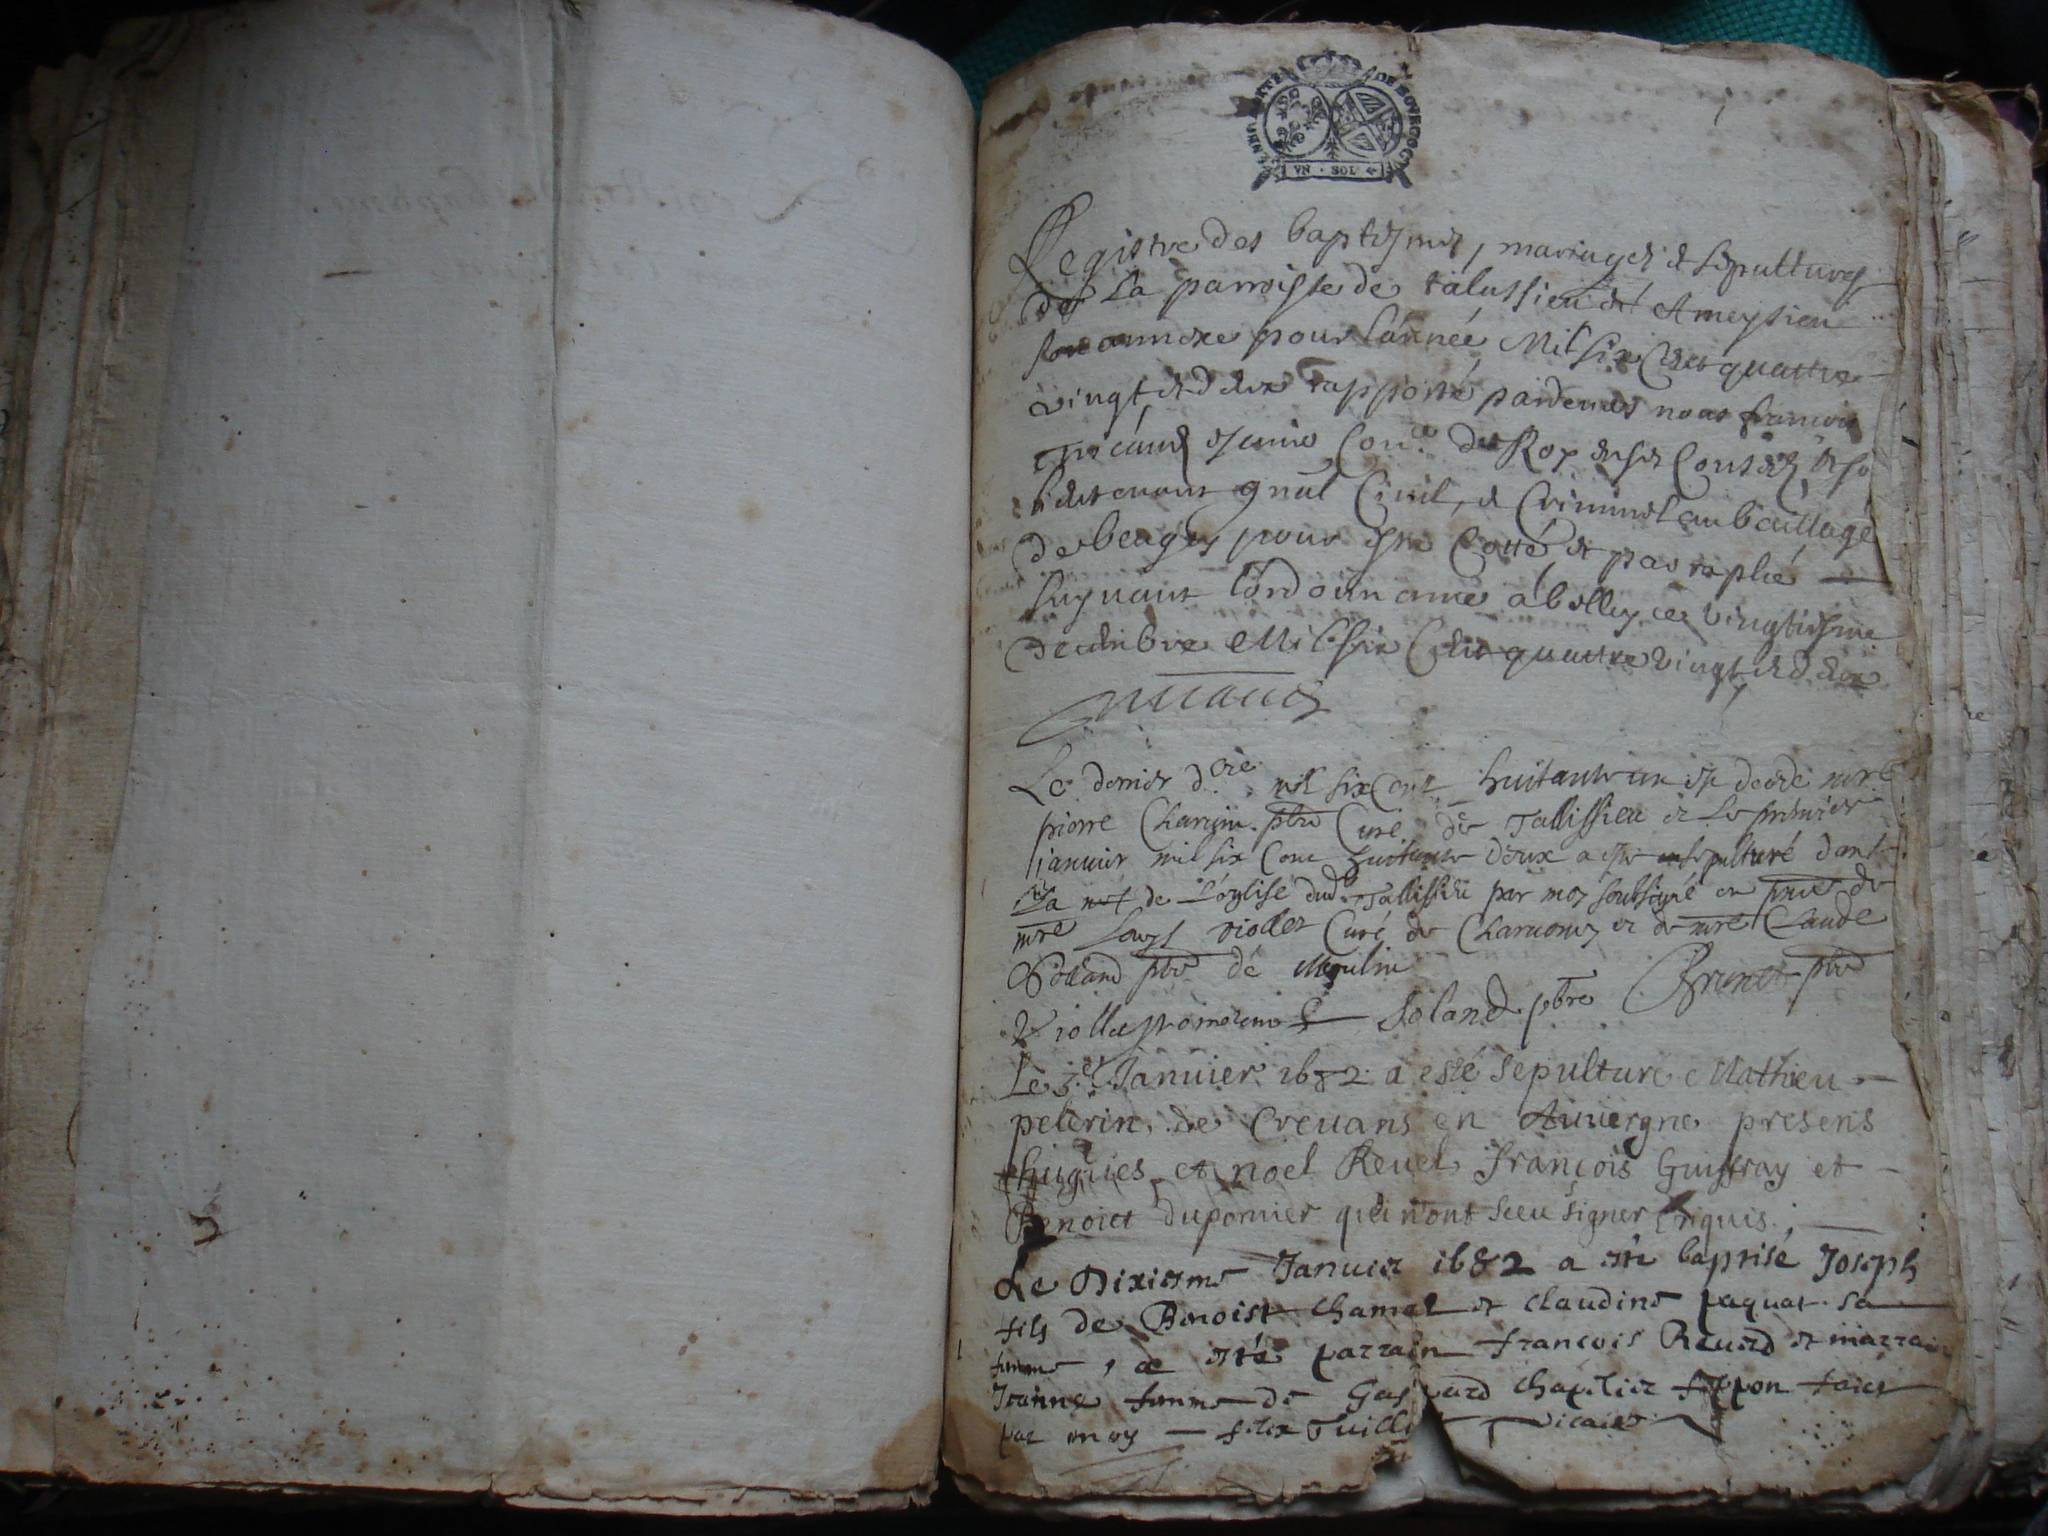 GENERALITE DE BOVRGOGNE
VN · SOL
Registre des baptesmes, mariages et sepultures
de La parroisse de talussieu et Ameysieu
son annexe pour L'année Mil six Cens quattre
vingt et deux rapporté pardevant nous francois
escuier Conr. du Roy en ses Conseils,
lieutenant gnal Civil, et Criminel au bailliage
de beugey pour estre Cotté et paraphé
suyvant l'ordonnance a belley ce vingtiesme
decembre Mil six Cens quattre vingt et deux
Le dernier mil six Cent huitante un est decedé mre
pierre pbre Curé de Tallissieu et Le premier
januier mil six Cent huitante deux a esté sepulturé dans
La nef de L'église dud. Tallissieu par moy soubsigné en pnce de
mre Louys viollet Curé de et de mre Claude
pbre de Moulin
Viollet Soland pbre Brunet pbre
Le 3e Januier 1682 a esté sepulturé Mathieu
pelerin, de Creuans en Auuergne presens
hugues et noel Reuel François Guiffray et
Benoict duponnier qui n'ont sceu signer enquis;
Le Dixiesme Januier 1682 a esté baptisé Joseph
fils de Benoist Chamel et Claudine paquat sa
femme, a esté parrain francois Reuerd et marraine
Jeanne femme de Gaspard Chapelier
par moy — felix vicaire